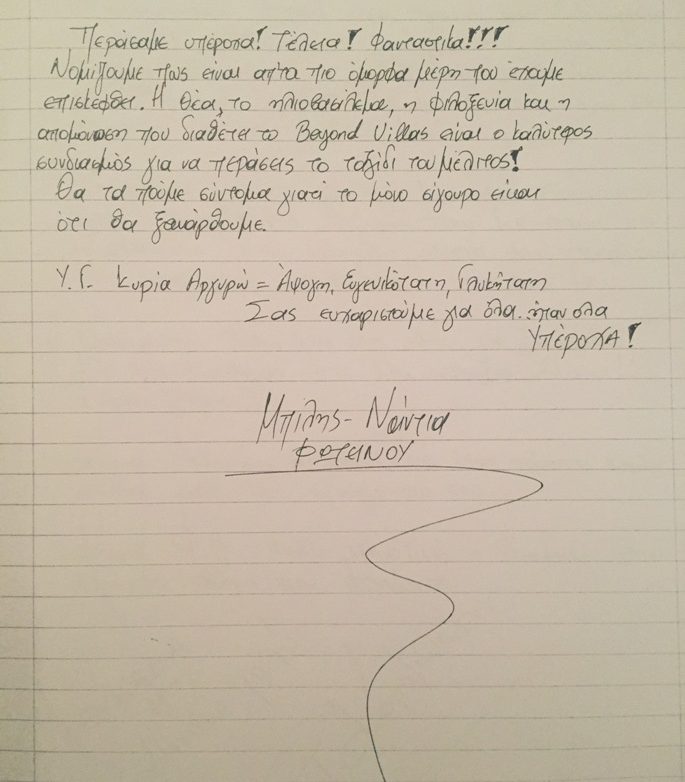 Περάσαμε υπέροχα! Τέλεια! Φανταστικά!!!
Νομίζουμε πως είναι απ'τα πιο όμορφα μέρη που έχουμε
επισκεφθεί. Η θέα, το ηλιοβασίλεμα, η φιλοξενία και η
απομόνωση που διαθέτει το Beyond Villas είναι ο καλύτερος
συνδιασμός για να περάσεις το ταξίδι του μέλιτος!
Θα τα πούμε σύντομα γιατί το μόνο σίγουρο είναι
ότι θα ξανάρθουμε.
Υ.Γ. Κυρία Αργυρώ = Άψογη, Ευγενικότατη, Γλυκύτατη
Σας ευχαριστούμε για όλα. ήταν όλα
ΥΠΕΡΟΧΑ!
Μπίλης - Νάντια
ΦΩΤΕΙΝΟΥ